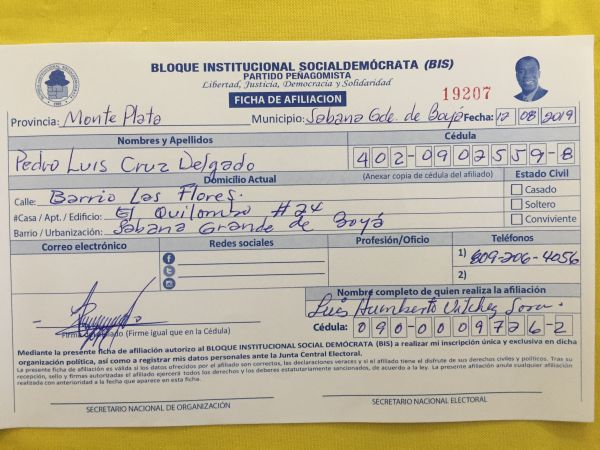 BLOQUE INSTITUCIONAL SOCIALDEMÓCRATA (BIS)
PARTIDO PEÑAGOMISTA
Libertad, Justicia, Democracia y Solidaridad
19207
FICHA DE AFILIACION
Provincia: Monte Plata Municipio: Sabana Gde. de Boyá Fecha: 12 08 2019
Nombres y Apellidos Cédula
Pedro Luis Cruz Delgado 402-0902559-8
Domicilio Actual (Anexar copia de cédula del afiliado) Estado Civil
Calle: Barrio Las Flores. Casado
#Casa / Apt. / Edificio: El Quilombo #24 Soltero
Barrio / Urbanización: Sabana Grande de Boyá Conviviente
Correo electrónico Redes sociales Profesión/Oficio Teléfonos
1) 809-206-4056
2)
Nombre completo de quien realiza la afiliación
Luis Humberto Vilchez
Firma (Firme igual que en la Cédula) Cédula: 090-0009726-2
Mediante la presente ficha de afiliación autorizo al BLOQUE INSTITUCIONAL SOCIAL DEMÓCRATA (BIS) a realizar mi inscripción única y exclusiva en dicha
organización política, así como a registrar mis datos personales ante la Junta Central Electoral.
La presente ficha de afiliación es válida si los datos ofrecidos por el afiliado son correctos, las declaraciones veraces y si el afiliado tiene el disfrute de sus derechos civiles y políticos. Tras su
recepción, sello y firmas autorizadas el afiliado ejercerá todos los derechos y los deberes estatutariamente sancionados, de acuerdo a la ley. La presente afiliación anula cualquier afiliación
realizada con anterioridad a la fecha que aparece en esta ficha.
SECRETARIO NACIONAL DE ORGANIZACIÓN SECRETARIO NACIONAL ELECTORAL